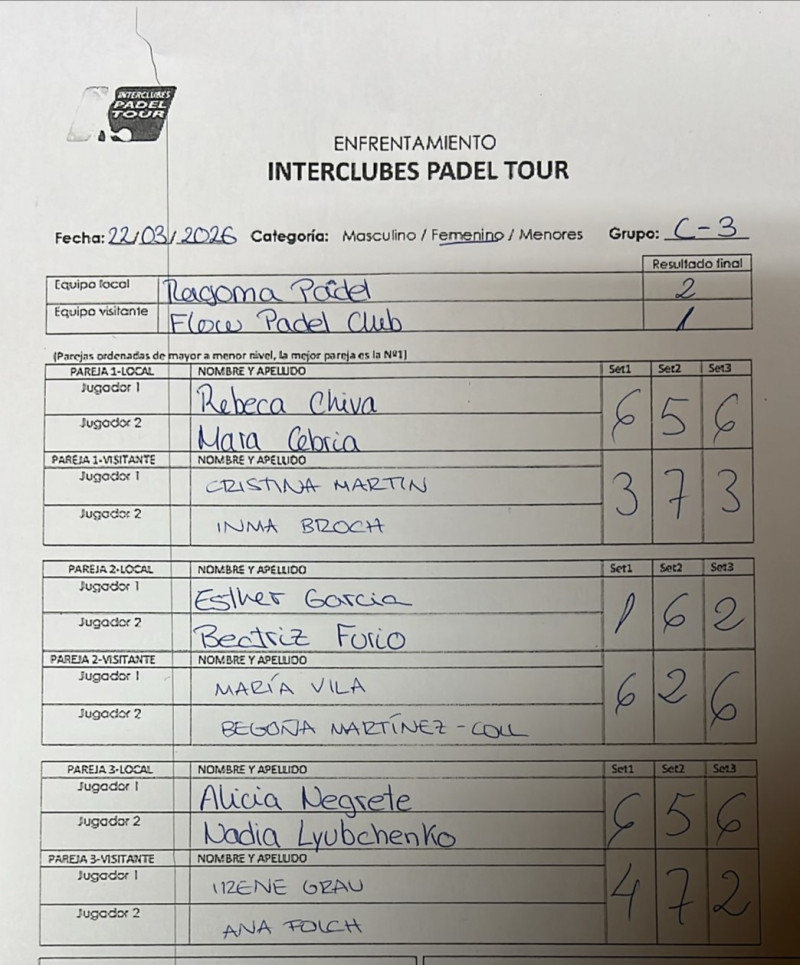 INTERCLUBES
PADEL
TOUR
ENFRENTAMIENTO
INTERCLUBES PADEL TOUR
Fecha: 22/03/2026 Categoría: Masculino / Femenino / Menores Grupo: C-3
Resultado final
Equipo local Ragoma Padel 2
Equipo visitante Flow Padel Club 1
(Parejas ordenadas de mayor a menor nivel, la mejor pareja es la Nº1)
PAREJA 1-LOCAL NOMBRE Y APELLIDO Set1 Set2 Set3
Jugador 1 Rebeca Chiva
Jugador 2 Mara Cebria
6 5 6
PAREJA 1-VISITANTE NOMBRE Y APELLIDO
Jugador 1 CRISTINA MARTIN
Jugador 2 INMA BROCH
3 7 3
PAREJA 2-LOCAL NOMBRE Y APELLIDO Set1 Set2 Set3
Jugador 1 Esther Garcia
Jugador 2 Beatriz Furio
1 6 2
PAREJA 2-VISITANTE NOMBRE Y APELLIDO
Jugador 1 MARÍA VILA
Jugador 2 BEGOÑA MARTÍNEZ-COLL
6 2 6
PAREJA 3-LOCAL NOMBRE Y APELLIDO Set1 Set2 Set3
Jugador 1 Alicia Negrete
Jugador 2 Nadia Lyubchenko
6 5 6
PAREJA 3-VISITANTE NOMBRE Y APELLIDO
Jugador 1 IRENE GRAU
Jugador 2 ANA FOLCH
4 7 2